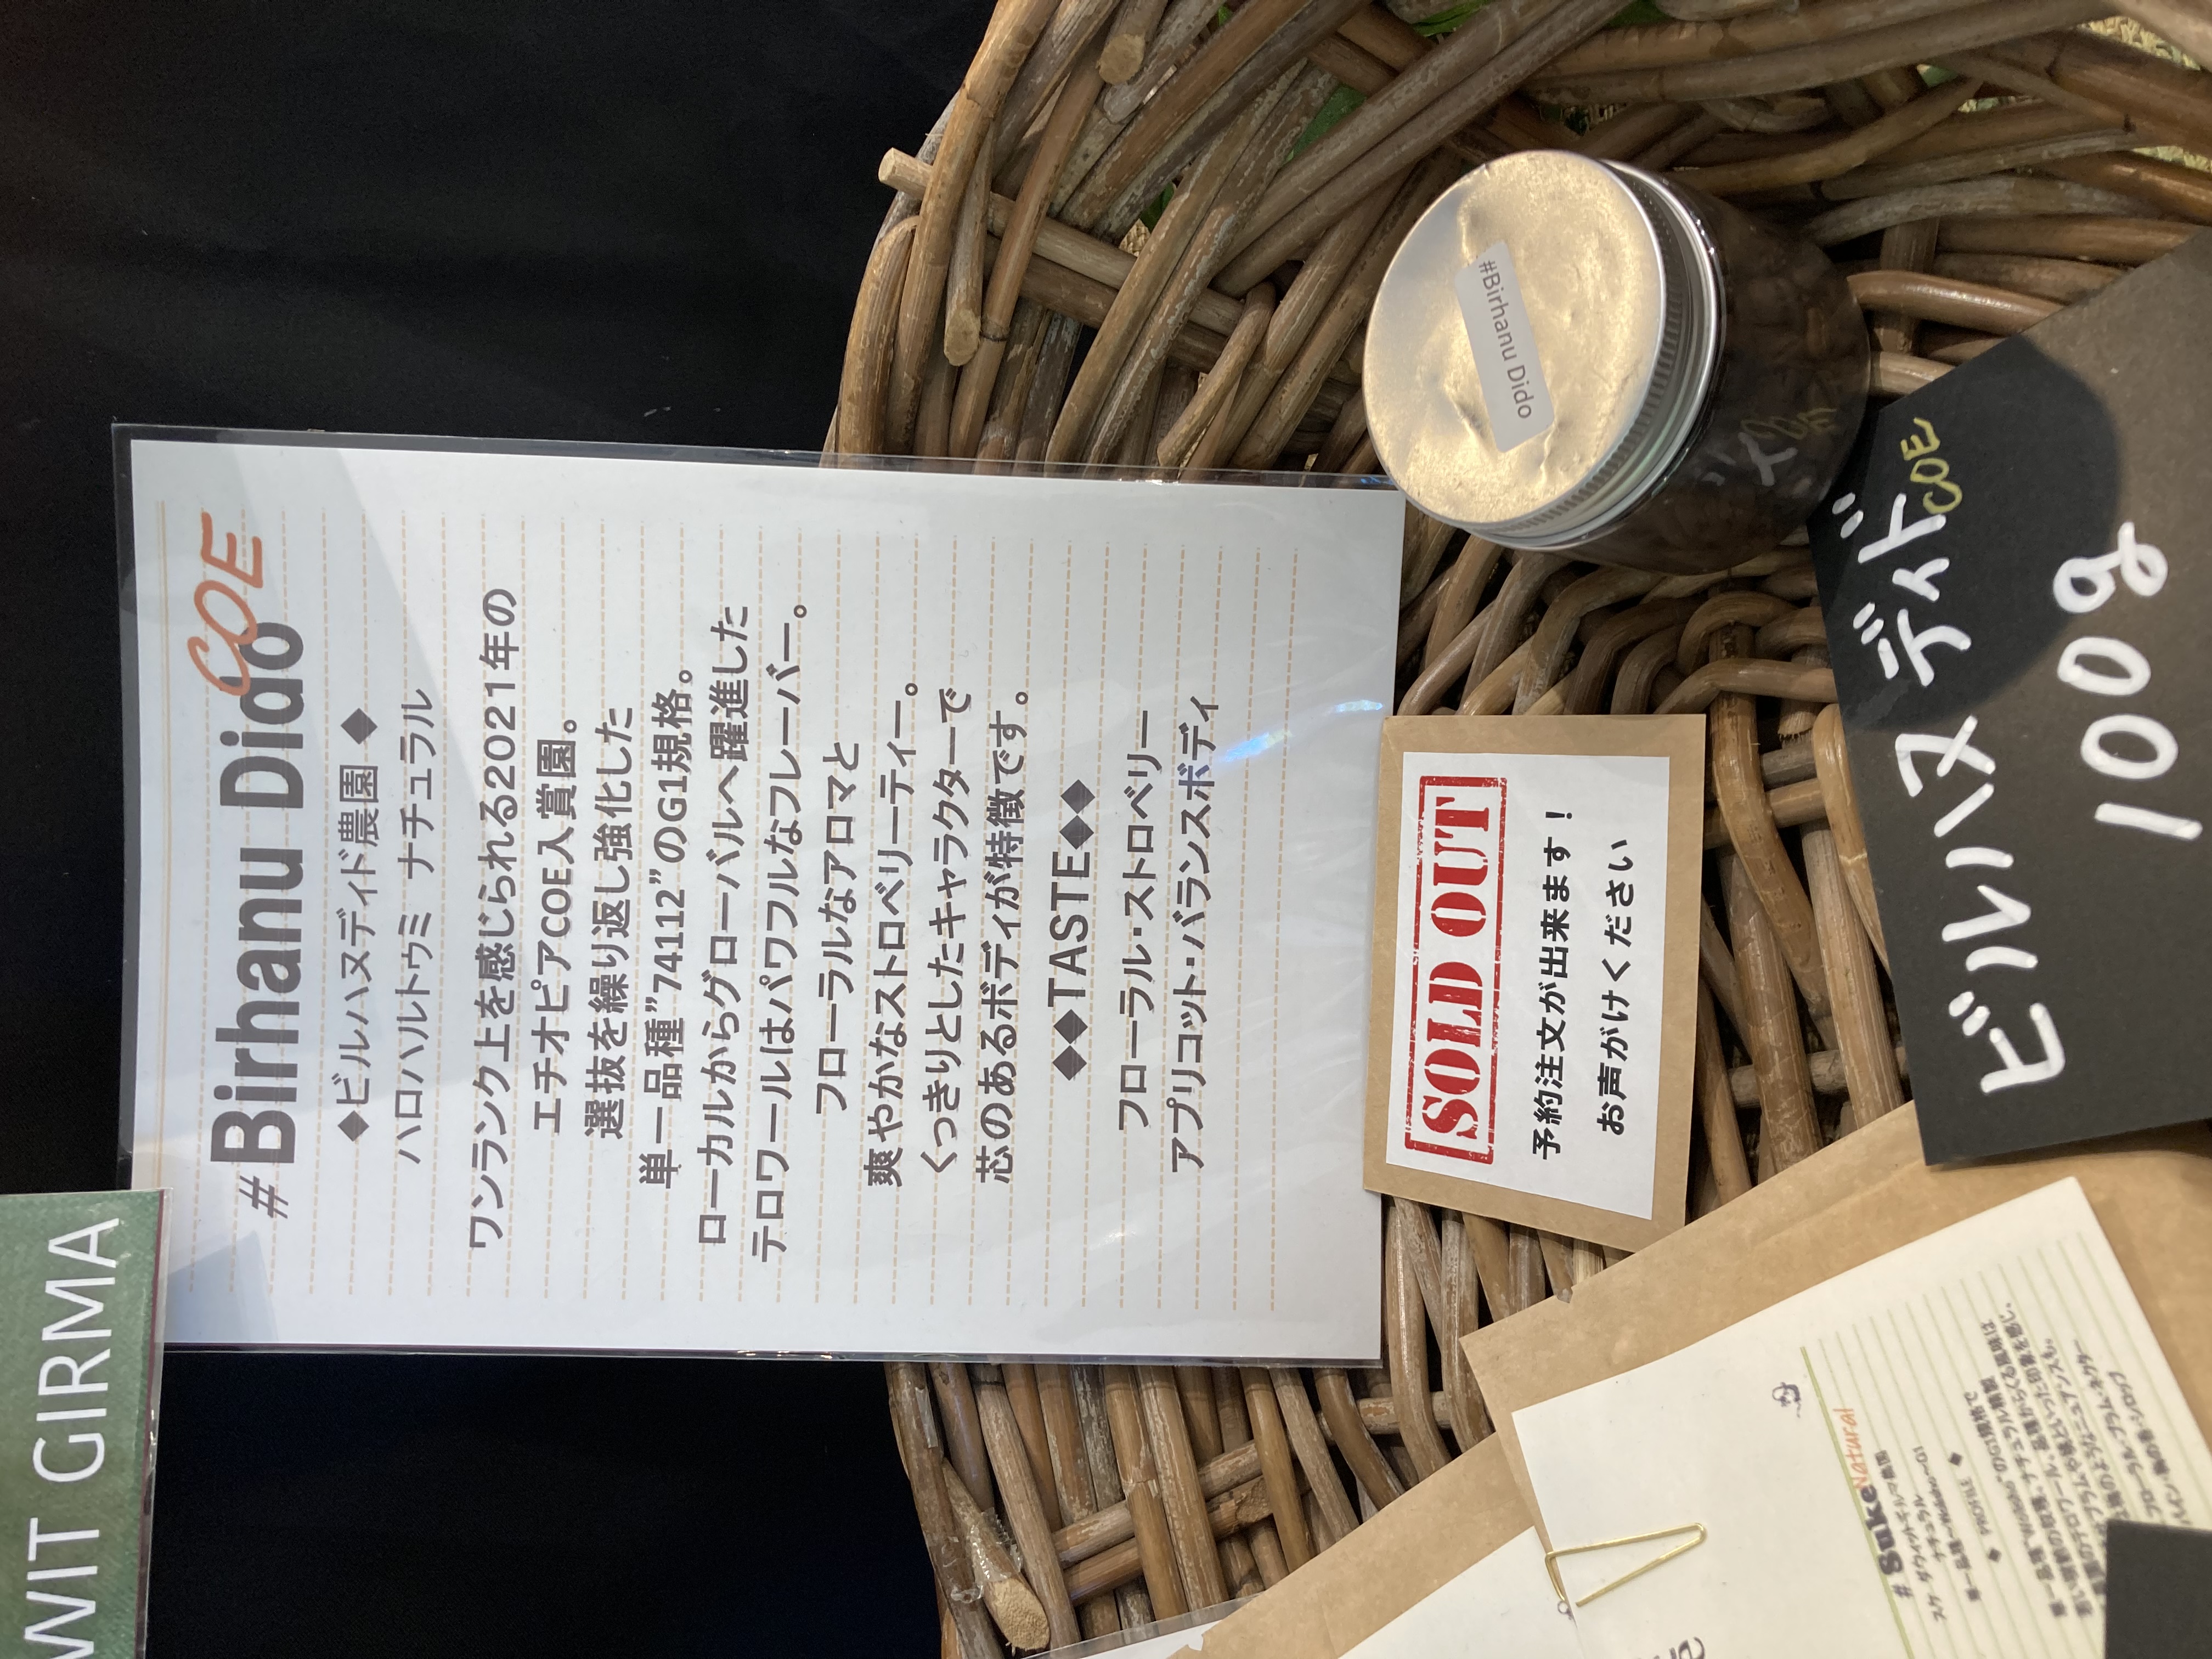 WIT GIRMA
# Birhanu Dido
COE
◆ビルハヌディド農園◆
ハロハルトゥミ ナチュラル
ワンランク上を感じられる2021年の
エチオピアCOE入賞園。
選抜を繰り返し強化した
単一品種”74112”のG1規格。
ローカルからグローバルへ躍進した
テロワールはパワフルなフレーバー。
フローラルなアロマと
爽やかなストロベリーティー。
くっきりとしたキャラクターで
芯のあるボディが特徴です。
◆◆TASTE◆◆
フローラル・ストロベリー
アプリコット・バランスボディ
SOLD OUT
予約注文が出来ます！
お声がけください
#Birhanu Dido
ビルハヌ ディド
COE
100g
# Suke
Natural
◆ PROFILE ◆